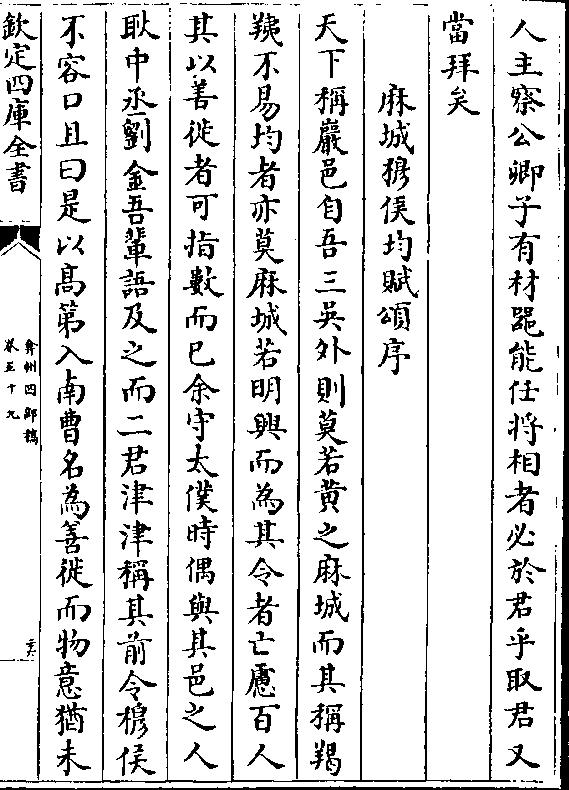 人主察公卿子有材噐能任将相者必於君乎取君又
當拜矣
麻城穆侯均賦頌序
天下稱巖邑自吾三吳外則莫若黄之麻城而其稱羯
羠不易均者亦莫麻城若明興而為其令者亡慮百人
其以善徙者可指數而已余守太僕時偶與其邑之人
耿中丞劉金吾輩語及之而二君津津稱其前令穆侯
不容口且曰是以髙第入南曹名為善徙而物意猶未
欽定四庫全書
弇州四部稿
卷五十九